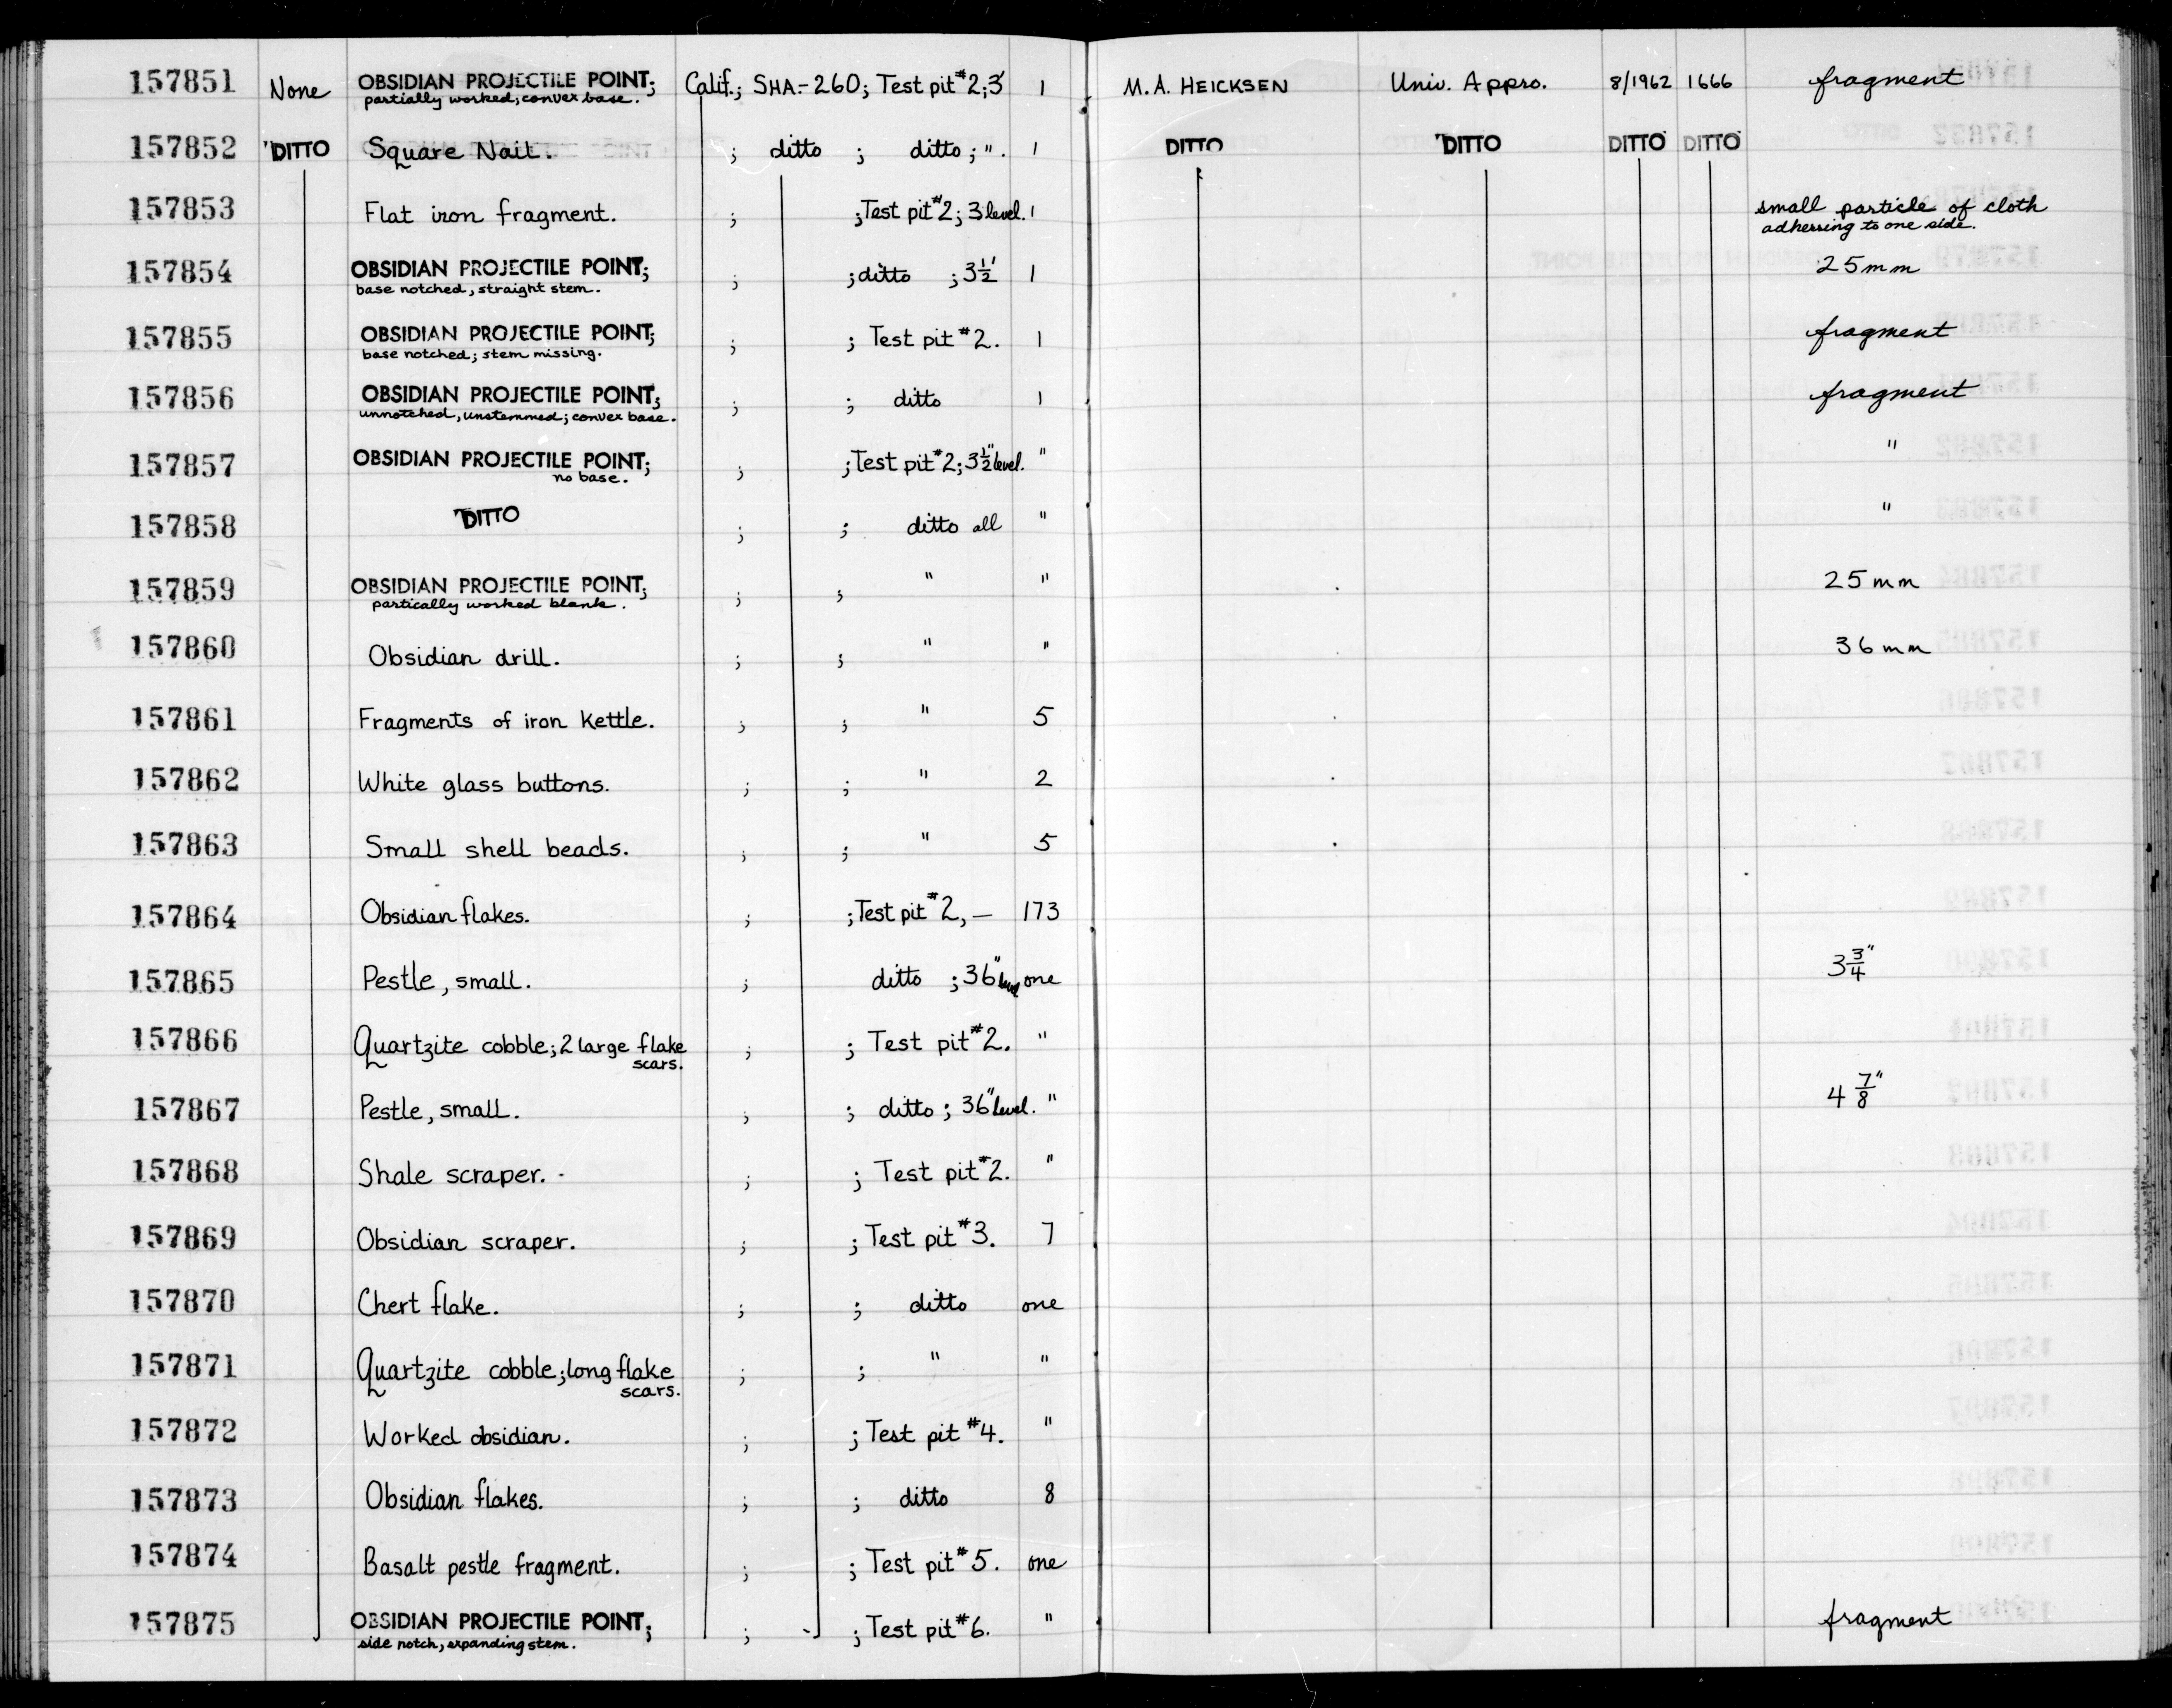 157851 None OBSIDIAN PROJECTILE POINT; Calif.; SHA.-260; Test pit #2; 3' 1 M. A. HEICKSEN Univ. Appro. 8/1962 1666 fragment
partially worked; convex base.
157852 DITTO Square Nail. ; ditto ; ditto; ". 1 DITTO DITTO DITTO DITTO
157853 Flat iron fragment. ; ;Test pit #2; 3 level. 1 small particle of cloth
adherring to one side.
157854 OBSIDIAN PROJECTILE POINT; ; ;ditto ;3½' 1 25mm
base notched, straight stem.
157855 OBSIDIAN PROJECTILE POINT; ; ; Test pit #2. 1 fragment
base notched; stem missing.
157856 OBSIDIAN PROJECTILE POINT; ; ; ditto 1 fragment
unnotched, unstemmed; convex base.
157857 OBSIDIAN PROJECTILE POINT; ; ;Test pit #2; 3½" level. " "
no base.
157858 DITTO ; ; ditto all " "
157859 OBSIDIAN PROJECTILE POINT; ; ; " " 25mm
partically worked blank.
157860 Obsidian drill. ; ; " " 36mm
157861 Fragments of iron kettle. ; ; " 5
157862 White glass buttons. ; ; " 2
157863 Small shell beads. ; ; " 5
157864 Obsidian flakes. ; ;Test pit #2, — 173
157865 Pestle, small. ; ditto ; 36" level one 3¾"
157866 Quartzite cobble; 2 large flake ; ; Test pit #2. "
scars.
157867 Pestle, small. ; ; ditto ; 36" level. " 4⅞"
157868 Shale scraper. ; ; Test pit #2. "
157869 Obsidian scraper. ; ; Test pit #3. 7
157870 Chert flake. ; ; ditto one
157871 Quartzite cobble; long flake ; ; " "
scars.
157872 Worked obsidian. ; ; Test pit #4. "
157873 Obsidian flakes. ; ; ditto 8
157874 Basalt pestle fragment. ; ; Test pit #5. one
157875 OBSIDIAN PROJECTILE POINT; ; ; Test pit #6. " fragment
side notch, expanding stem.